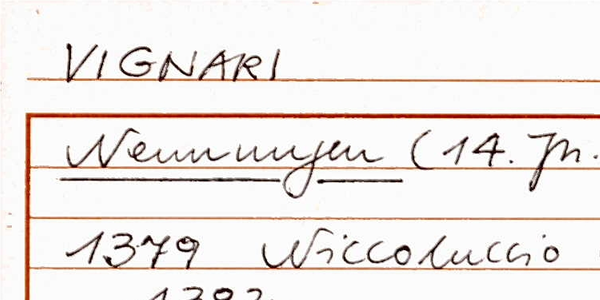 VIGNARI
Nennungen (14. Jh.
1379 Niccoluccio
1392